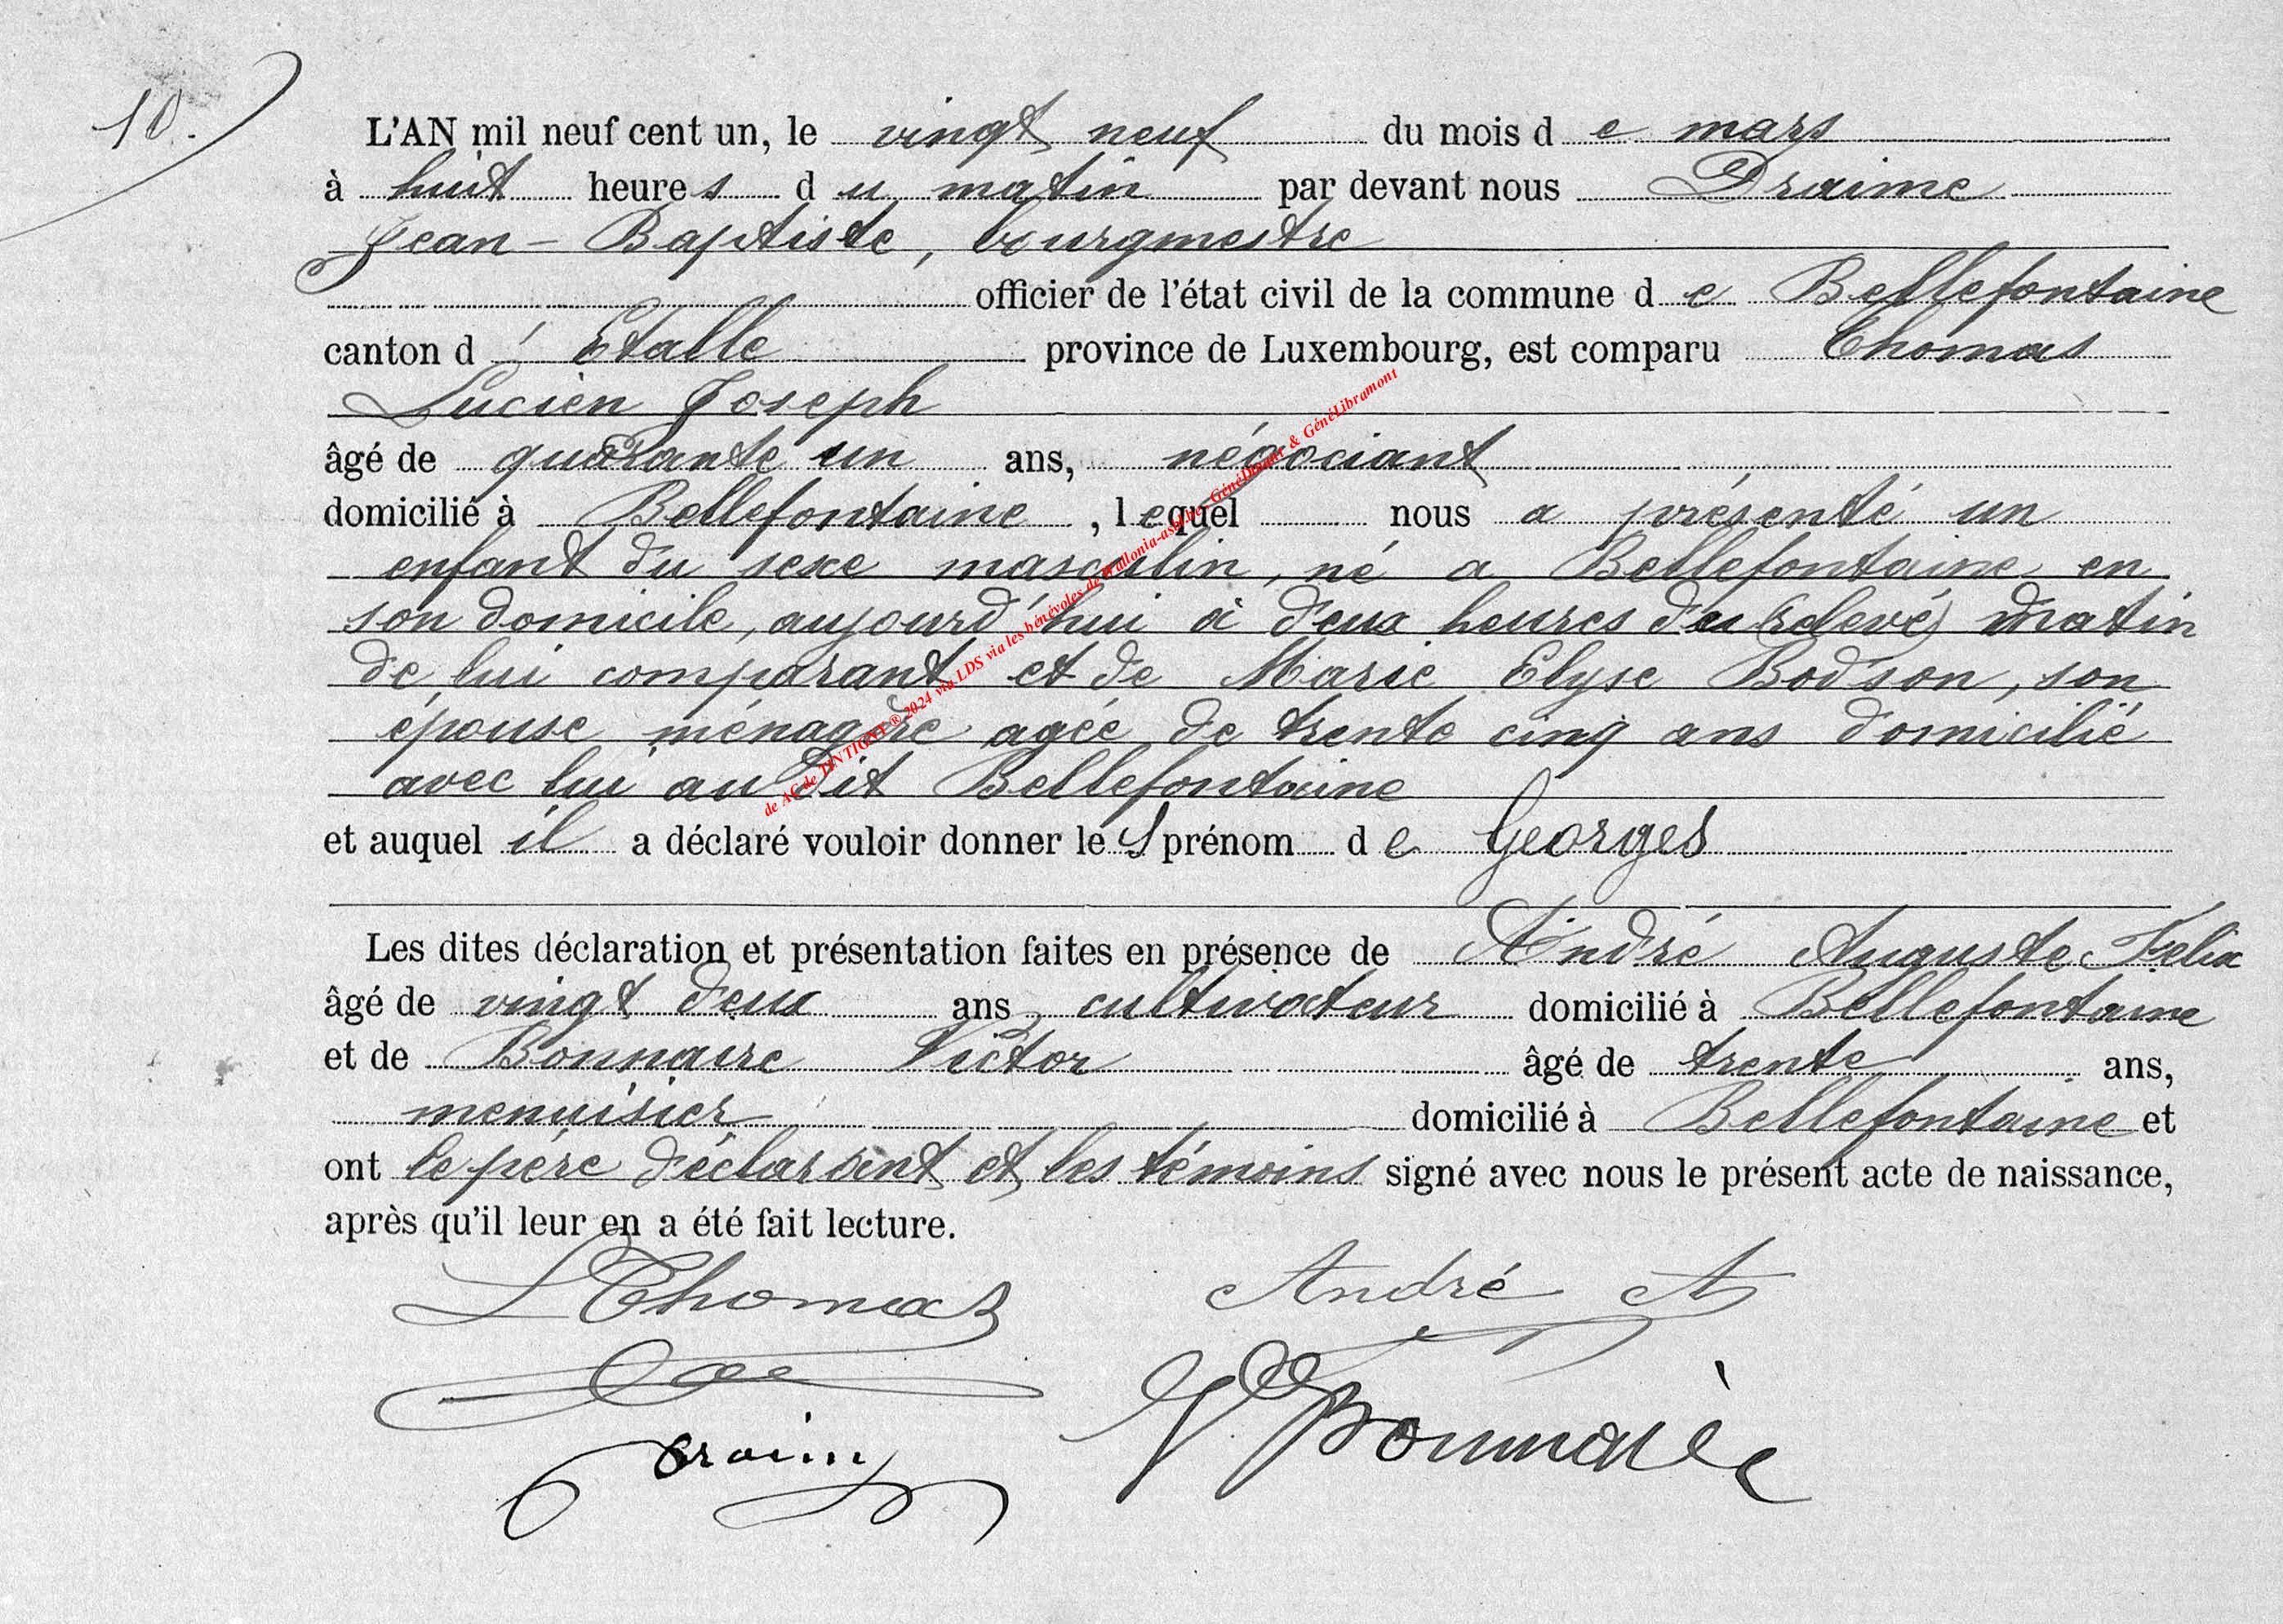 10.
L'AN mil neuf cent un, le vingt neuf du mois d e mars
à huit heure s d u matin par devant nous Draime
Jean - Baptiste, bourgmestre
officier de l'état civil de la commune d e Bellefontaine
canton d ' Etalle province de Luxembourg, est comparu Thomas
Lucien Joseph
âgé de quarante un ans, négociant
domicilié à Bellefontaine , l equel nous a présenté un
enfant du sexe masculin, né a Bellefontaine en
son domicile, aujourd'hui à deux heures du (relevé) matin
de lui comparant et de Marie Elyse Bodson, son
épouse ménagère agée de trente cinq ans domicilié
avec lui au dit Bellefontaine
et auquel il a déclaré vouloir donner le s prénom d e Georges
Les dites déclaration et présentation faites en présence de André Auguste Felix
âgé de vingt deux ans, cultivateur domicilié à Bellefontaine
et de Bonnaire Victor âgé de trente ans,
menuisier domicilié à Bellefontaine et
ont le père déclarant et les témoins signé avec nous le présent acte de naissance,
après qu'il leur en a été fait lecture.
L Thomas André A
Draime V Bonnaire
de AC de TINTIGNY ® 2024 via LDS via les bénévoles de Wallonia-asbl.be - GénéDinant & GénéLibramont